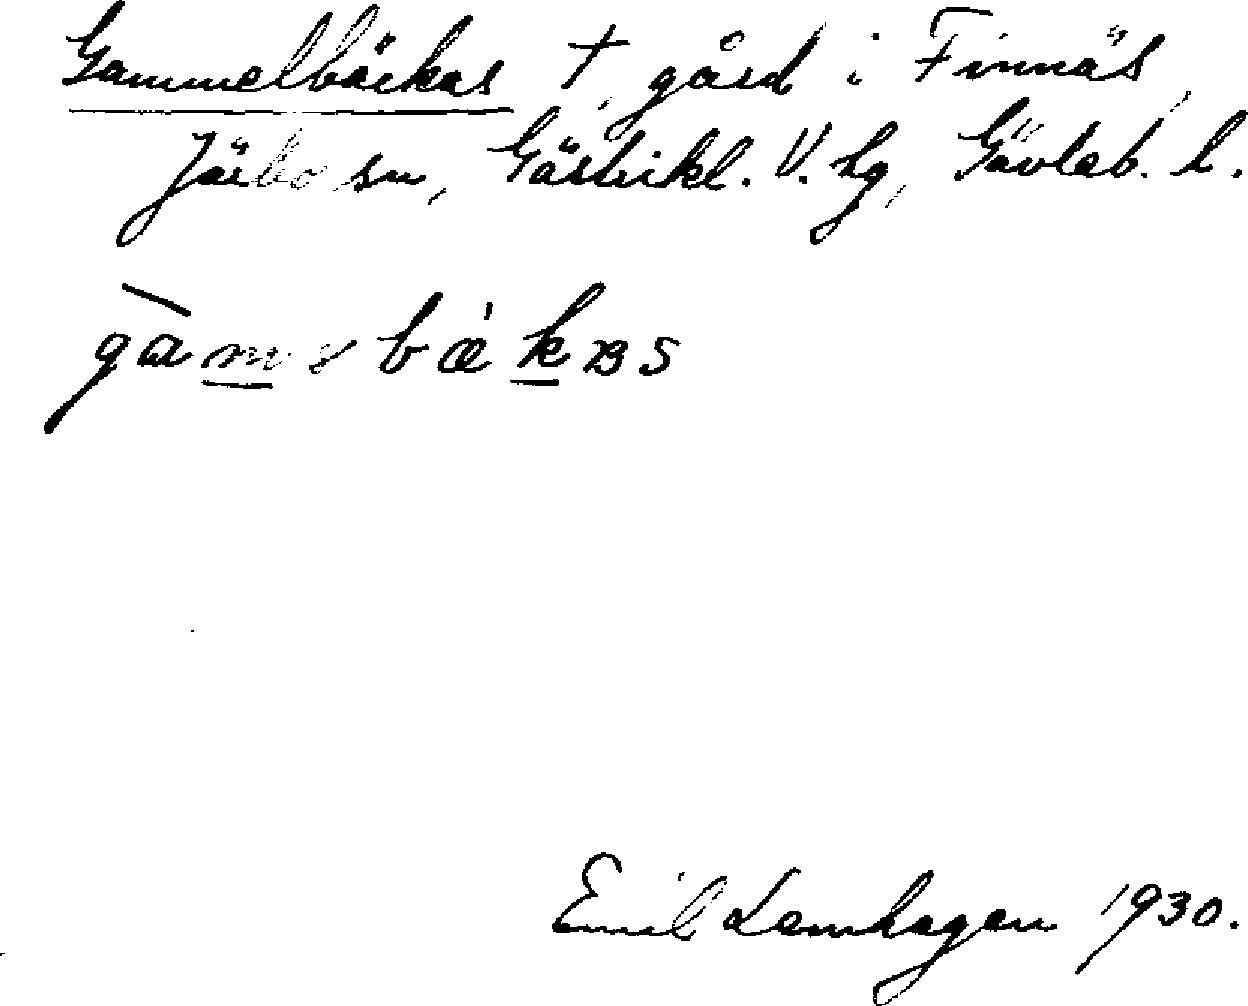 Gammelbäckas † gård i Finnäs,
Järbo sn, Gästrikl. V. hg, Gävleb. l.
Emil Lamhagen 1930.